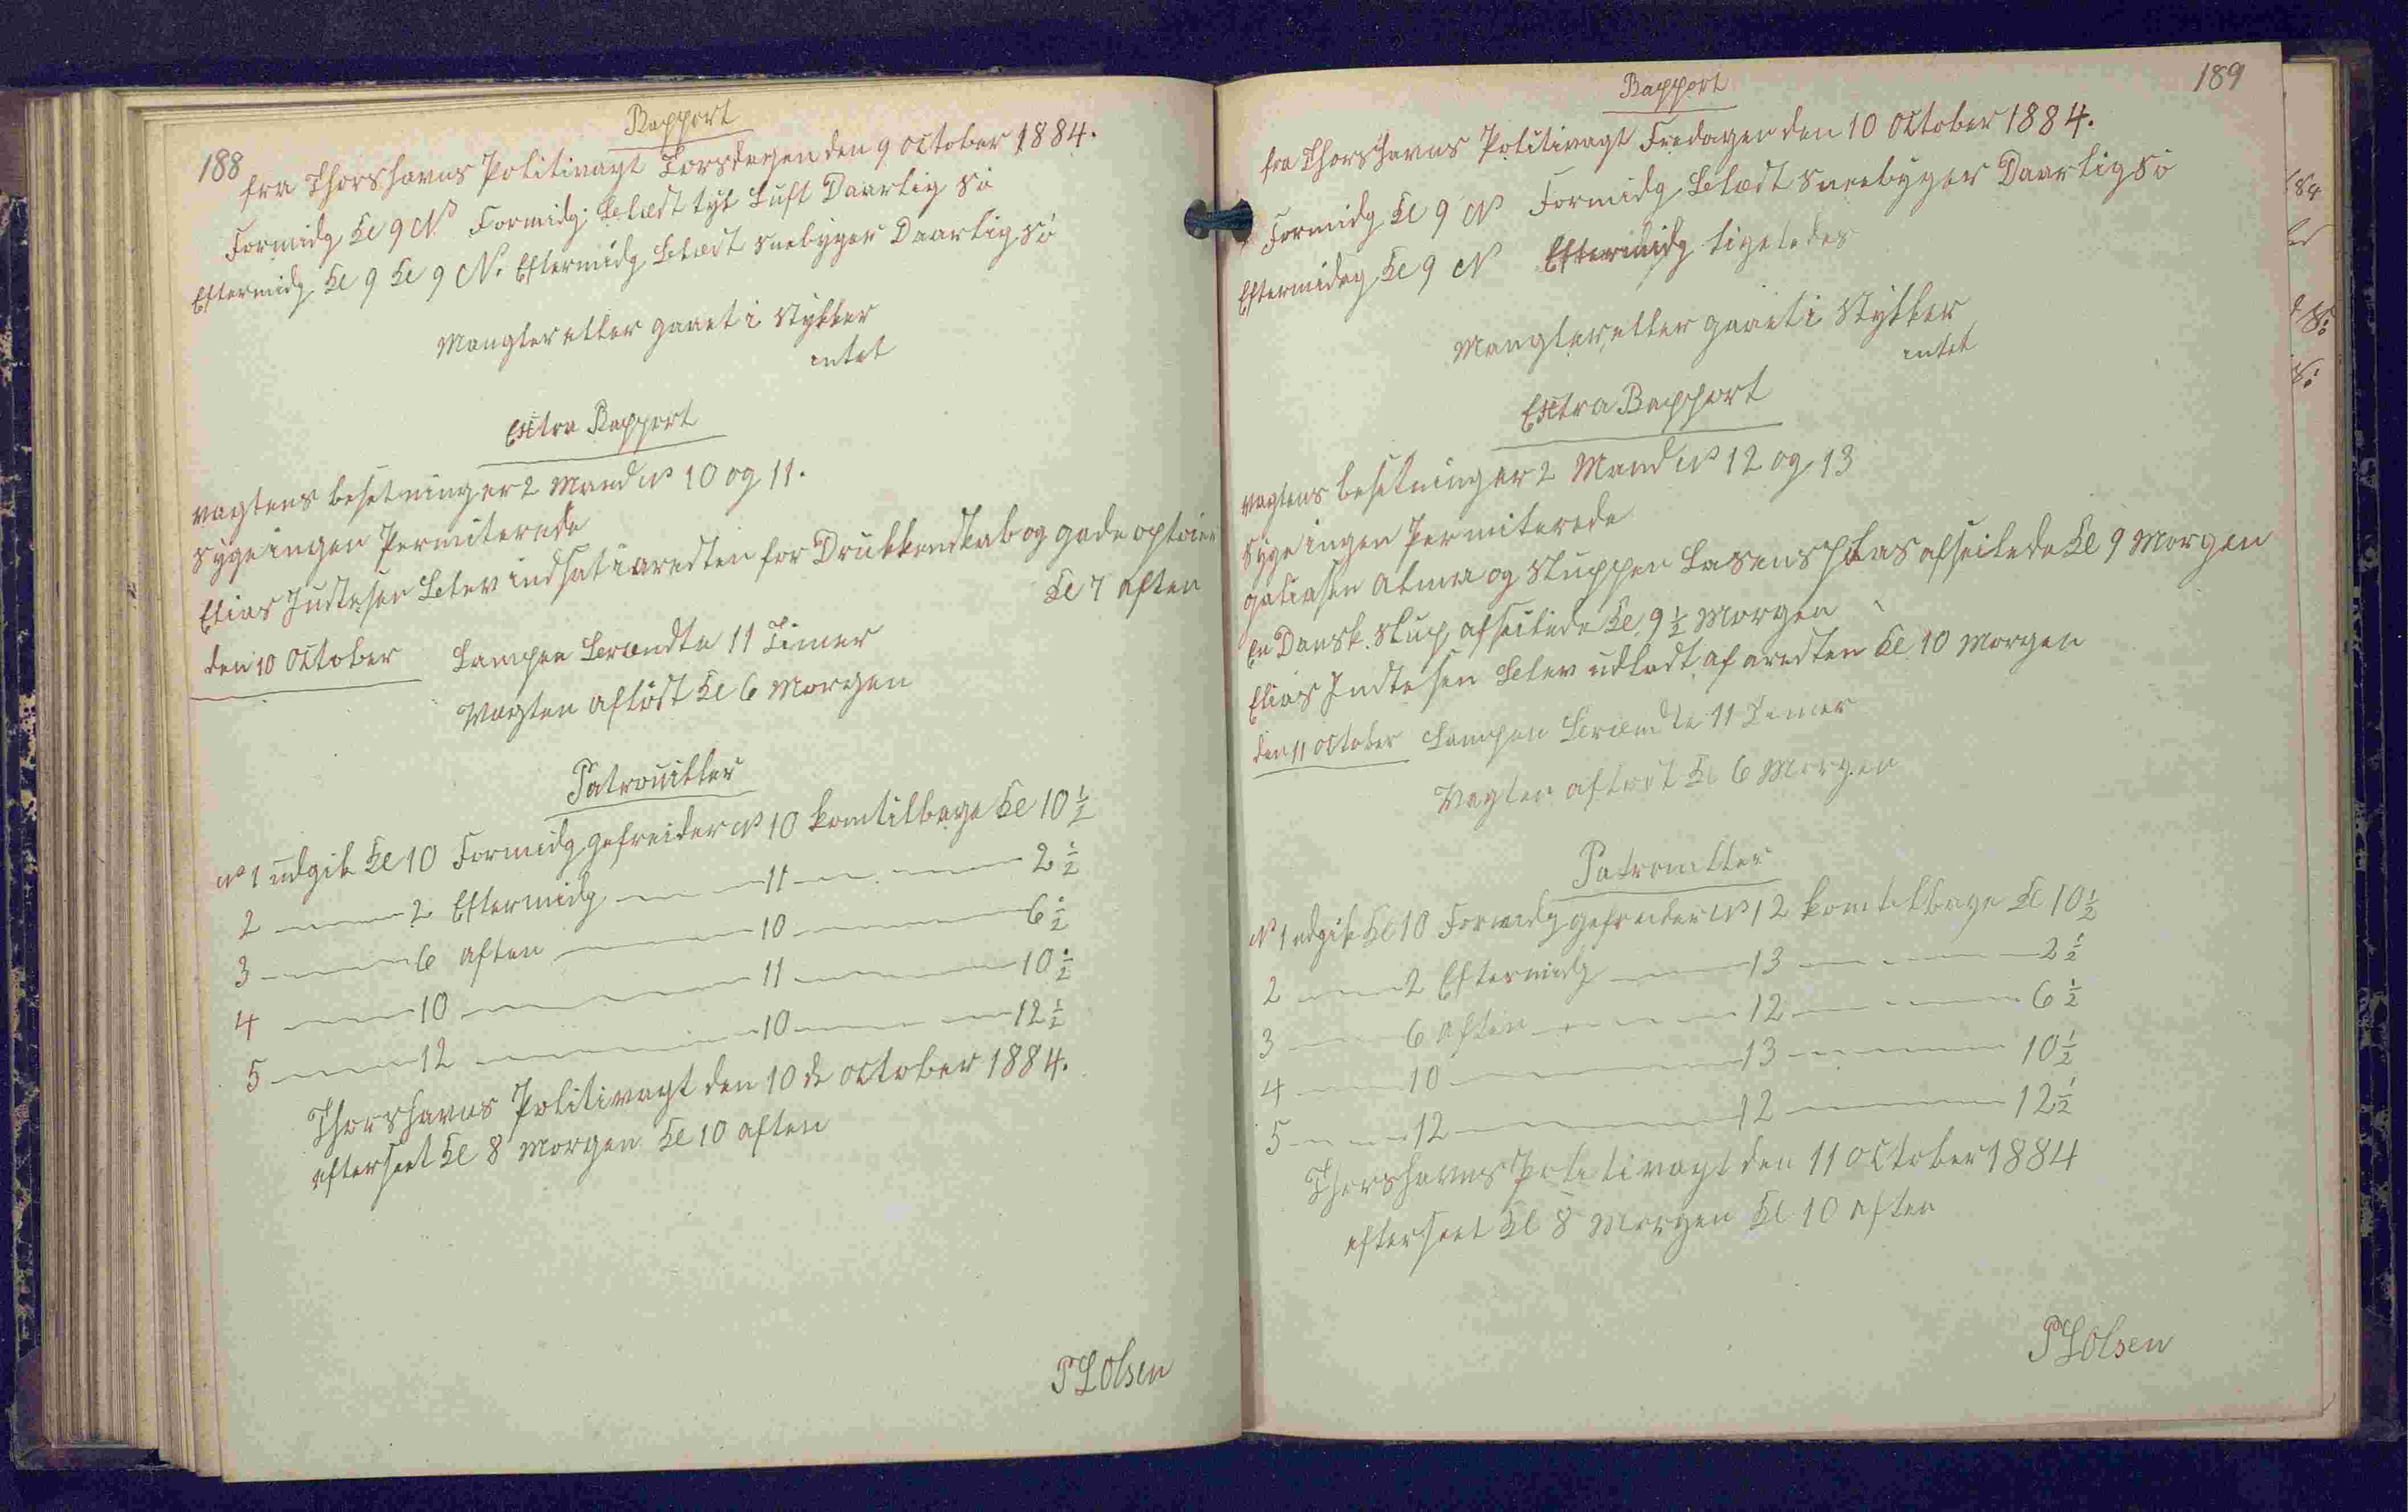 188
Rapport
fra Thorshavns Politivagt Torsdagen den 9 October 1884.
Formidg Kl 9 N Formidg: Blædt tyk Luft Daarlig Sö
Eftermidg Kl 9 Kl 9 N. Eftermidg Blædt Sneebyger Daarlig Sö
Mangler eller gaaet i Stykker
intet
Extra Rapport
Vagtens besetning er 2 Mand No 10 og 11.
Syge ingen Permiterede
Elias Blev indsat i aresten for Drukkendskab og gade optöier
Kl 7 aften
den 10 October Lampen Brændte 11 Timer
Vagten aflöst Kl 6 Morgen
Patrouiller
No 1 udgik Kl 10 Formidg gefreider No 10 kom tilbage Kl 10 ½
2 — 2 Eftermidg — 11 — 2 ½
3 — 6 aften — 10 — 6 ½
4 — 10 — 11 — 10 ½
5 — 12 — 10 — 12 ½
Thorshavns Politivagt den 10 de October 1884.
efterseet Kl 8 Morgen Kl 10 aften
P L Olsen
189
Rapport
fra Thorshavns Politivagt Fredagen den 10 October 1884.
Formidg Kl 9 N Formidg Blædt Sneebyger Daarlig Sö
Eftermidag Kl 9 N Eftermidg ligeledes
Mangler eller gaaet i Stykker
intet
Extra Rapport
Vagtens besetning er 2 Mand No 12 og 13
Syge ingen Permiterede
galiasen og Sluppen afseilede Kl 9 Morgen
En Dansk. Slup afseilede Kl. 9 ½ Morgen
Elias Blev udladt af aresten Kl 10 Morgen
den 11 October Lampen Brændte 11 Timer
Vagten aflöst Kl 6 Morgen
Patrouiller
No 1 udgik Kl 10 Formidg gefreider No 12 kom tilbage Kl 10 ½
2 — 2 Eftermidg — 13 — 2 ½
3 — 6 aften — 12 — 6 ½
4 — 10 — 13 — 10 ½
5 — 12 — 12 — 12 ½
Thorshavns Politivagt den 11 October 1884
efterseet Kl 8 Morgen Kl 10 aften
P L Olsen